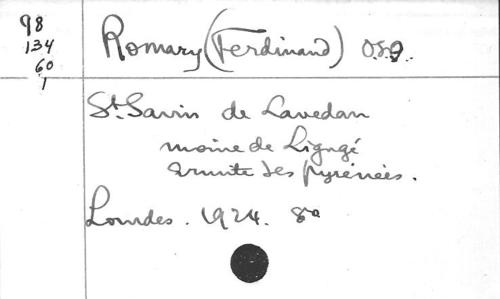 98
134
60
1
Romary (Ferdinand) O.S.B.
St. Savin de Lavedan
moine de Ligugé
ermite des Pyrénées.
Lourdes. 1924. 8º